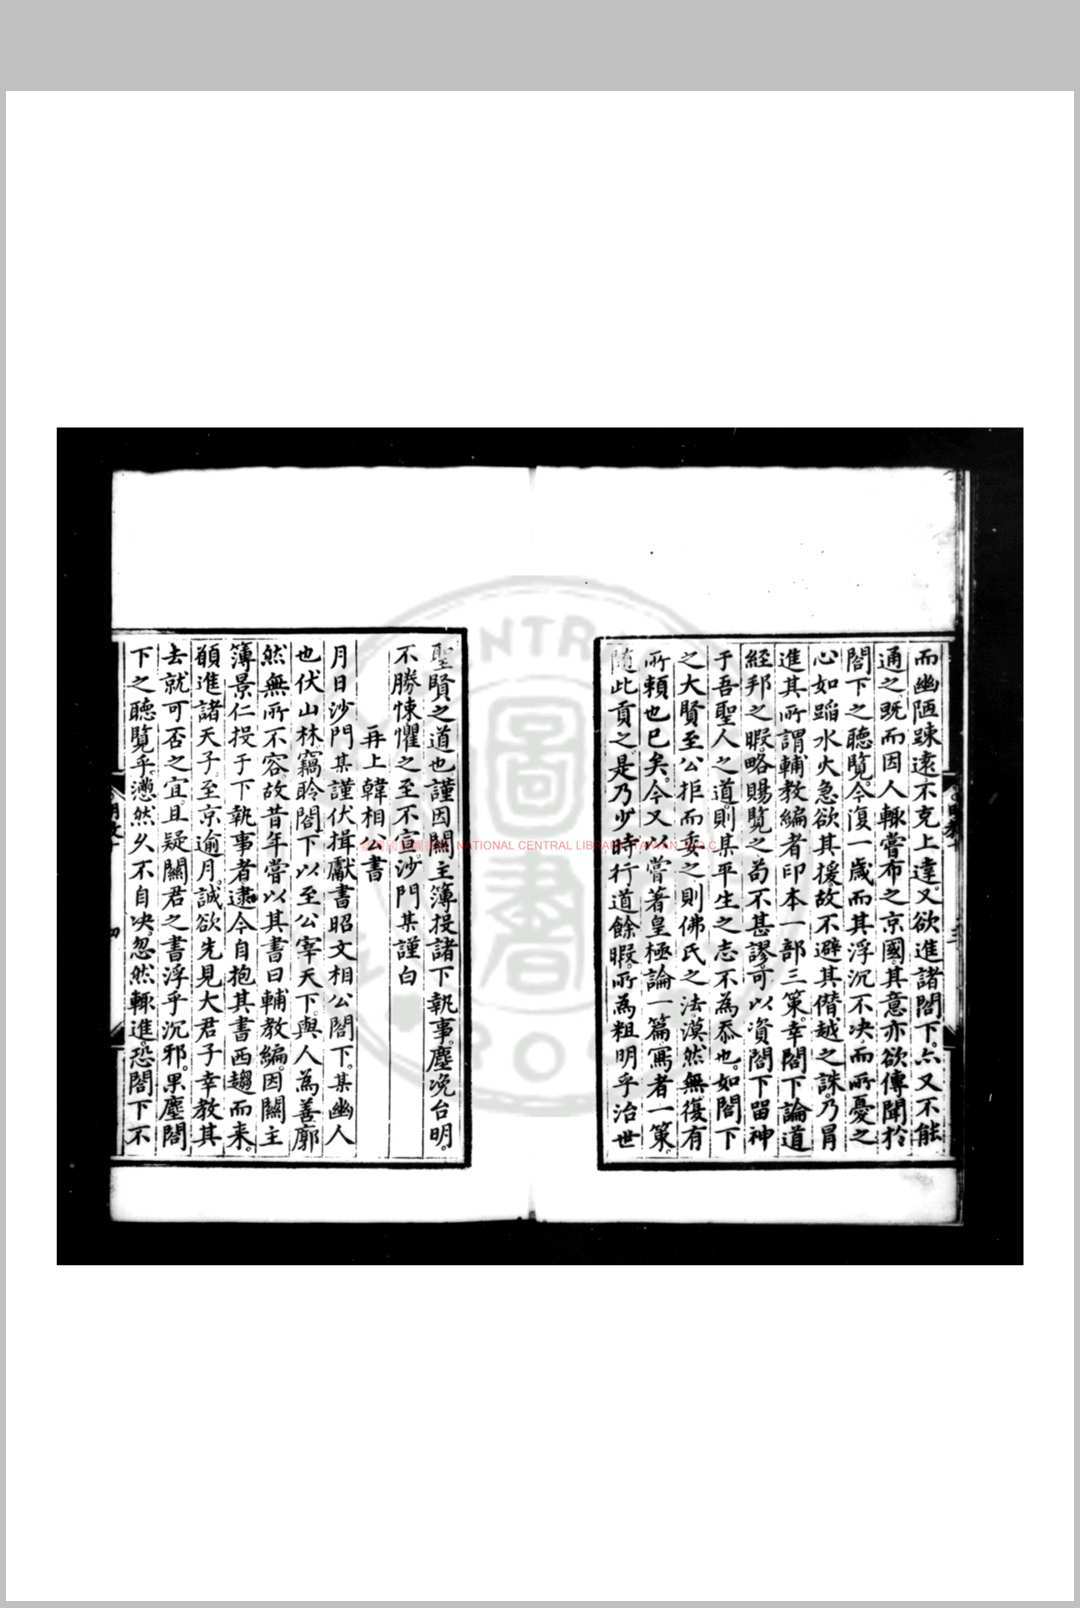 而幽陋踈逺不克上達又欲進諸閤下亦又不能
通之既而因人輙嘗布之京國其意亦欲傳聞扵
閤下之聽覧今復一歲而其浮沉不决而所憂之
心如蹈水火急欲其援故不避其僣越之誅乃冐
進其所謂輔教編者印本一部三策幸閤下論道
經邦之暇略賜覧之苟不甚謬可以資閤下留神
于吾聖人之道則某平生之志不為忝也如閤下
之大賢至公拒而委之則佛氏之法漠然無復有
所頼也已矣今又以嘗著皇極論一篇寫者一策
随此貢之是乃少時行道餘暇所為粗明乎治世
聖賢之道也謹因關主簿投諸下執事塵浼台明
不勝悚懼之至不宣沙門某謹白
再上韓相公書
月日沙門某謹伏揖獻書昭文相公閤下某幽人
也伏山林竊聆閤下以至公宰天下與人為善廓
然無所不容故昔年嘗以其書曰輔教編因關主
簿景仁投于下執事者逮今自抱其書西趨而来
願進諸天子至京逾月誠欲先見大君子幸教其
去就可否之宜且疑關君之書浮乎沉邪果塵閤
下之聽覧乎懣然乆不自决忽然輙進恐閤下不
NATIONAL CENTRAL LIBRARY, TAIWAN, R.O.C.
圖書